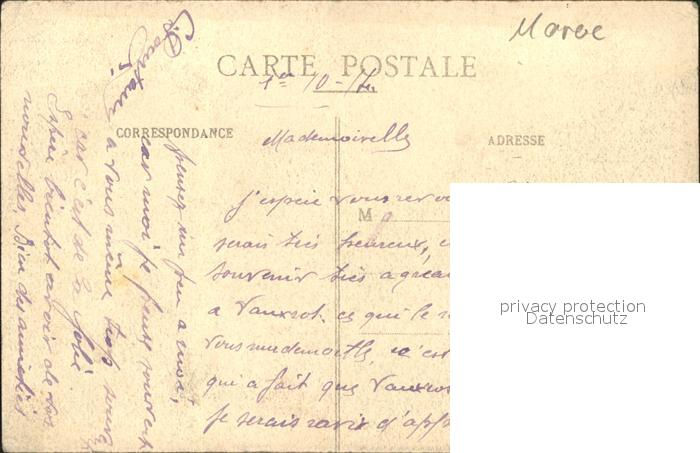 Maroc
CARTE POSTALE
CORRESPONDANCE
ADRESSE
Mademoiselle
M
J'espère vous
serais très heureux,
souvenir très agréa
a Vauxrot ce qui le
vous mademoiselle, c'est
qui a fait que Vauxrot
je serais ravi d'app
pensez un peu a moi,
car moi je pense souvent
a vous même trop souve
car c'est de la folie.
Espère bientôt avoir de vos
nouvelles. Bien des amitiés
privacy protection
Datenschutz